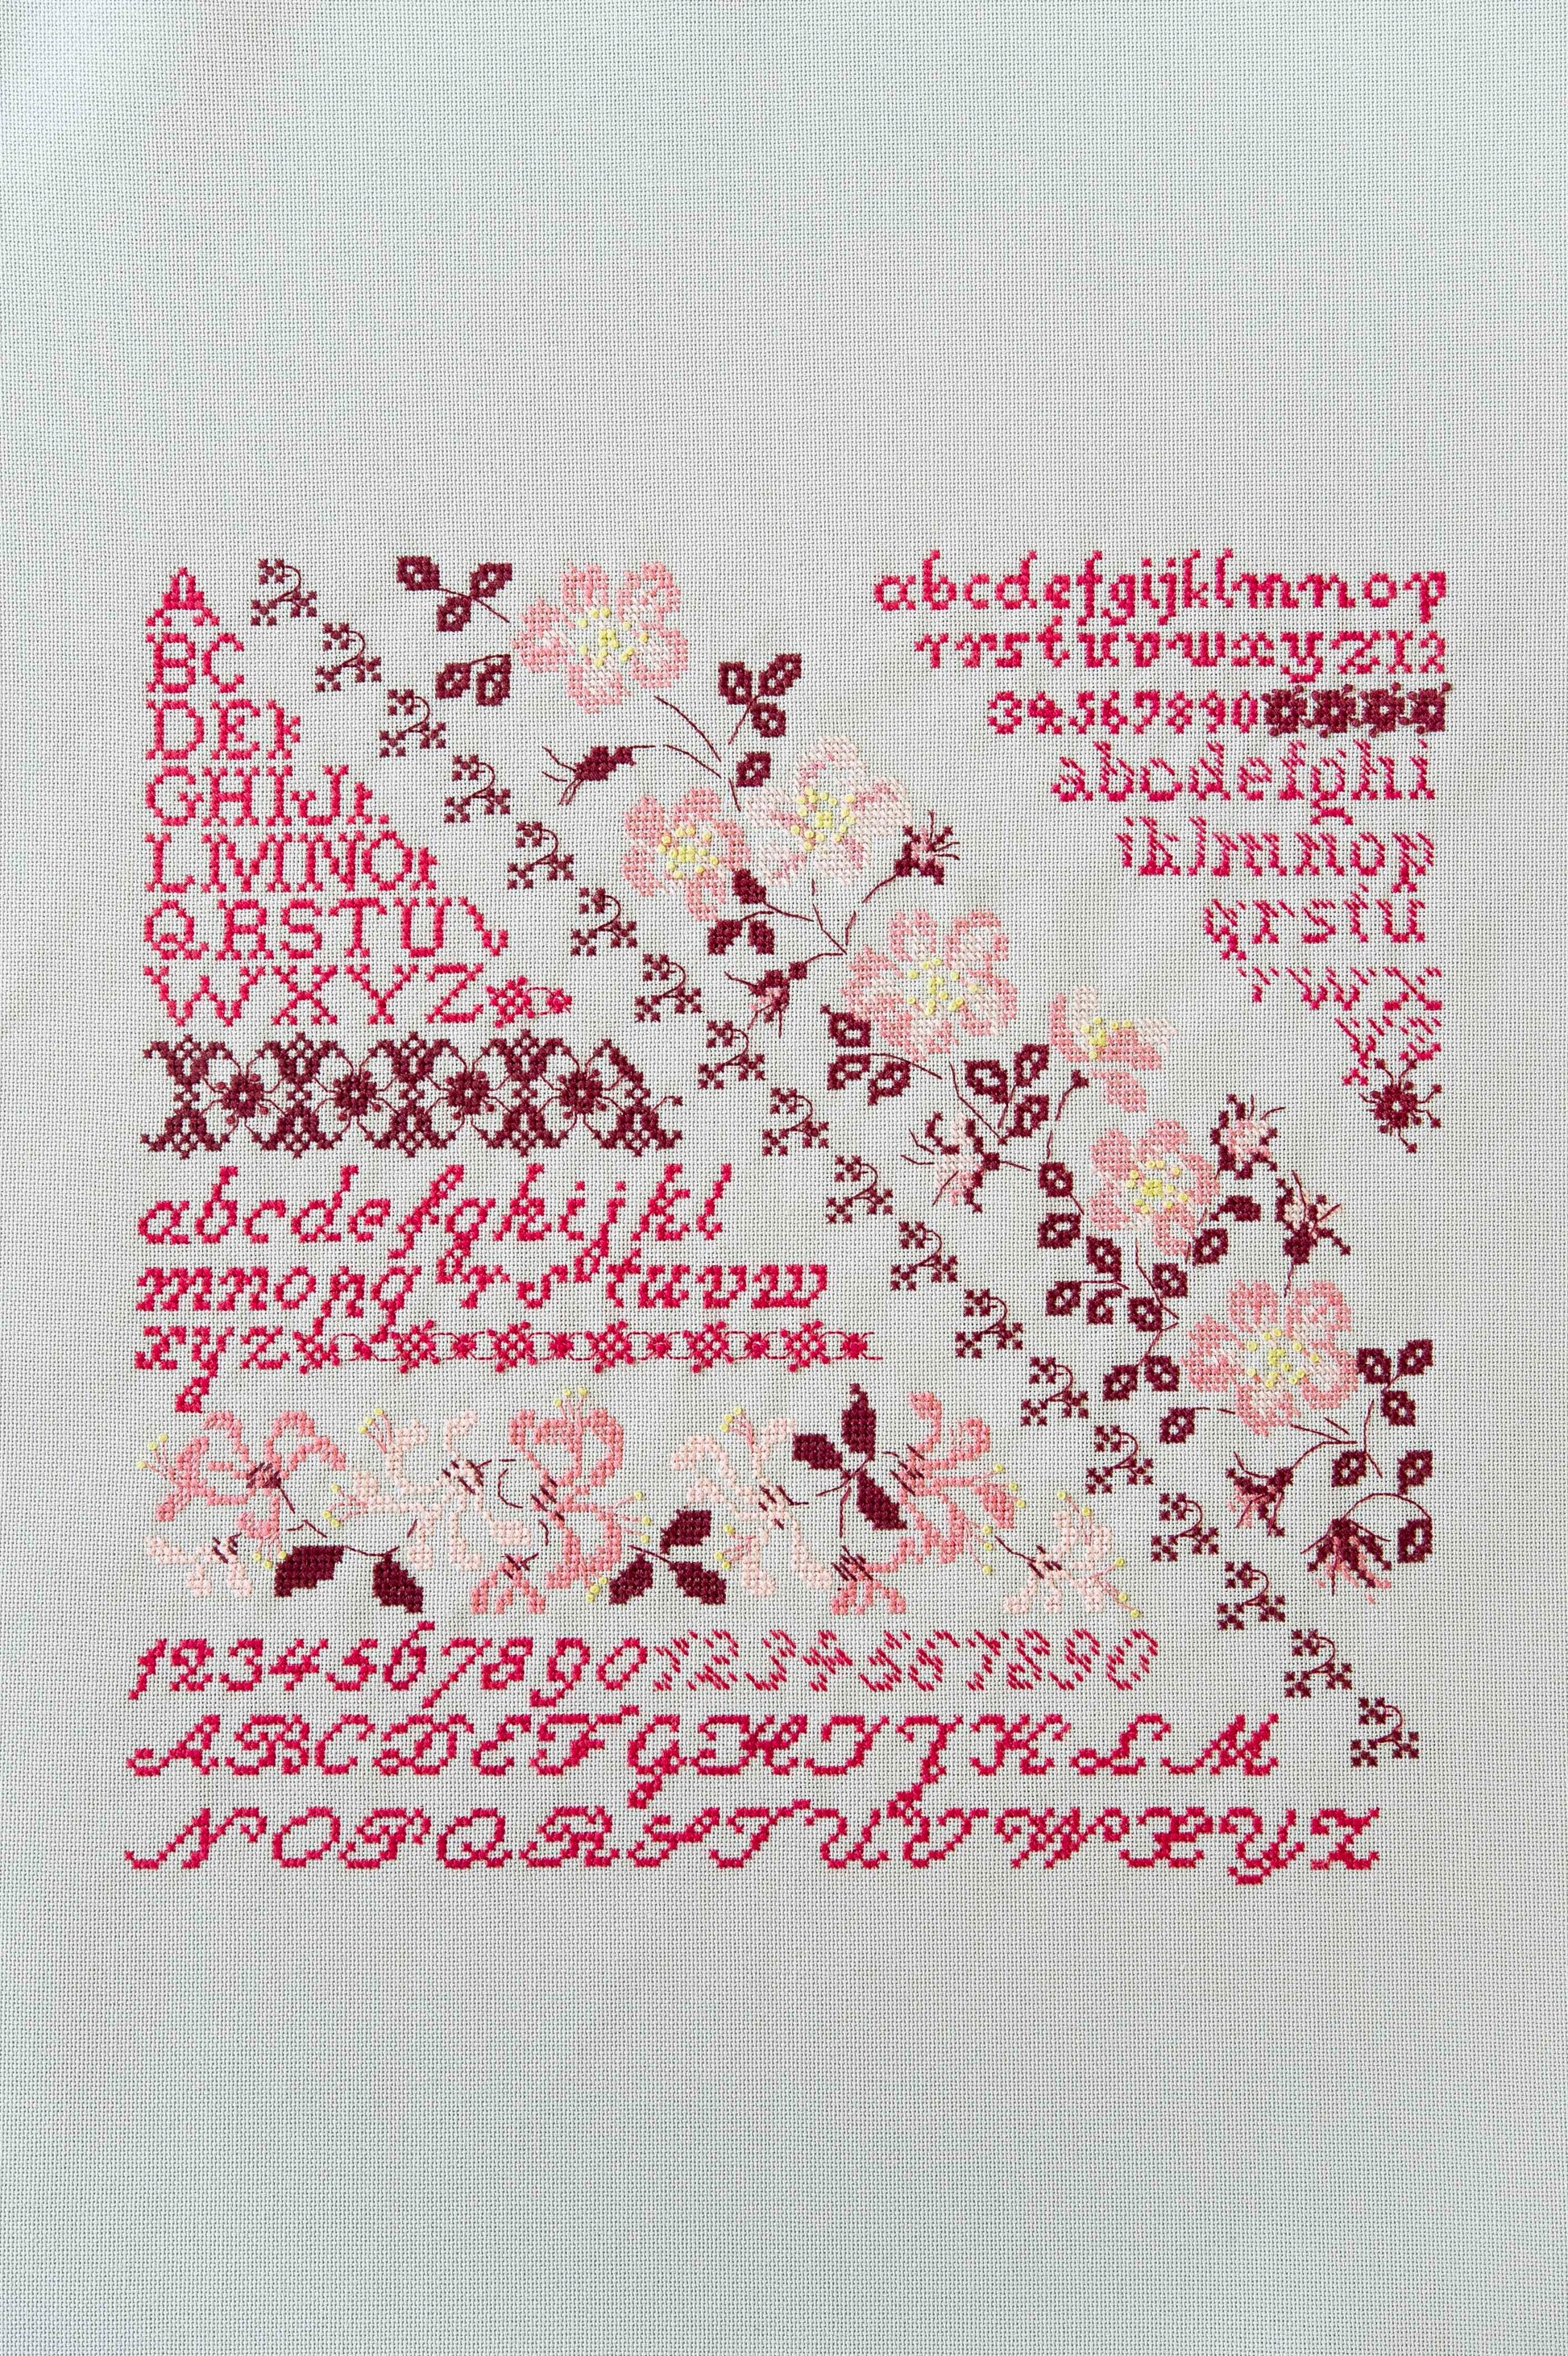 A
BC
DEF
GHIJK
LMNOP
QRSTUV
WXYZ
abcdefgijklmnop
rrstuvwxyz12
34567890
abcdefghi
iklmnop
qrstu
vwx
abcdefghijkl
mnopqrstuvw
xyz
12345678901234567890
ABCDEFGHIJKLM
NOPQRSTUVWXYZ